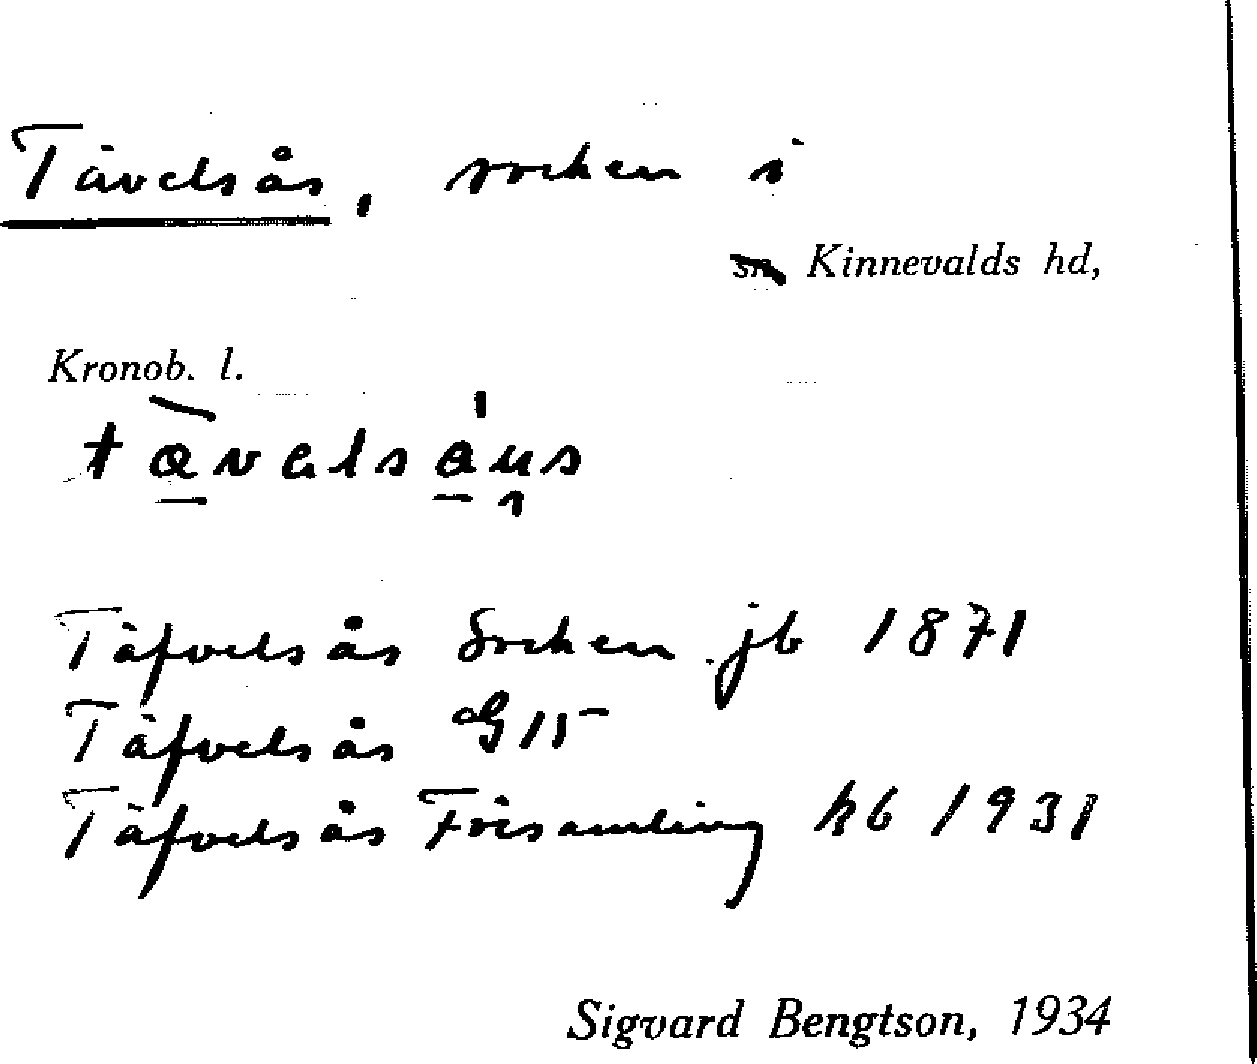 Tävelsås, socken i
Kinnevalds hd,
Kronob. l.
Täfvelsås Socken jb 1871
Täfvelsås GS
Täfvelsås Församling kb 1931
Sigvard Bengtson, 1934